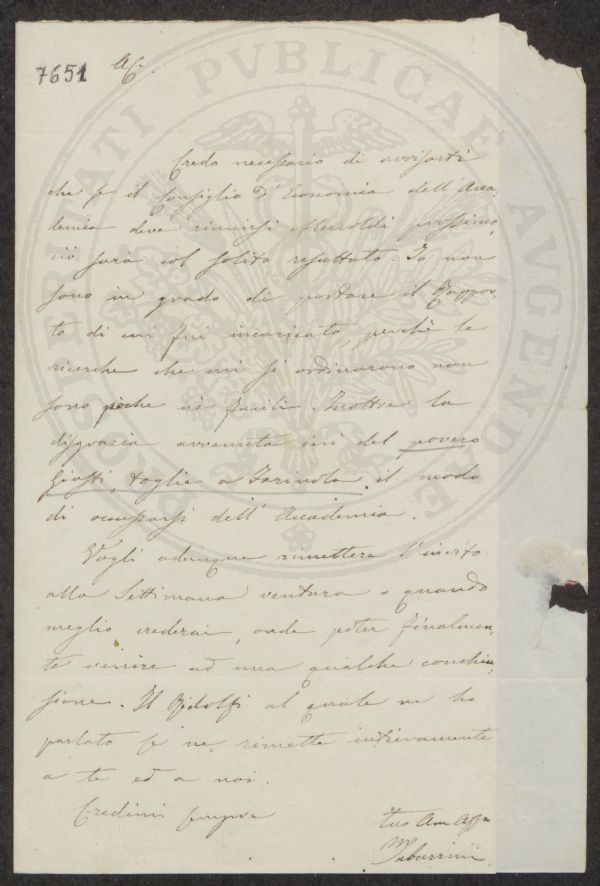 7651
AC.
PROSPERITATI PVBLICAE AVGENDAE
Credo necessario di avvisarti
che se il Consiglio d'Economia dell'Acca-
demia deve riunirsi Mercoldì prossimo,
ciò sarà col solito resultato. Io non
sono in grado di portare il Rappor-
to di cui fui incaricato, perchè le
ricerche che mi si ordinarono non
sono poche nè facili. Inoltre la
disgrazia avvenuta ieri del povero
Giusti, toglie a Farinola il modo
di occuparsi dell'Accademia.
Vogli adunque rimettere l'invito
alla Settimana ventura o quando
meglio crederai, onde poter finalmen-
te venire ad una qualche conchiu-
sione. Il Ridolfi al quale ne ho
parlato se ne rimette intieramente
a te ed a noi.
Credimi sempre
tuo Am Affo
M Tabarrini